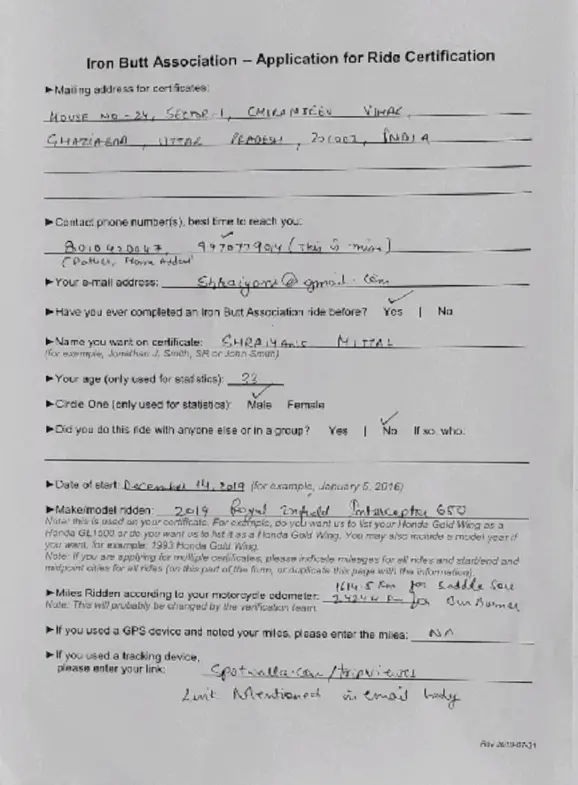 Iron Butt Association – Application for Ride Certification
►Mailing address for certificates:
HOUSE NO-24, SECTOR-1, CHIRANJEEV VIHAR,
GHAZIABAD, UTTAR PRADESH, 201002, INDIA
►Contact phone number(s), best time to reach you:
8010420047, 9970779014 (This is mine)
►Your e-mail address: @gmail.com
►Have you ever completed an Iron Butt Association ride before? Yes | No
►Name you want on certificate: SHRAIYANS MITTAL
(for example, Jonathan J. Smith, SR or John Smith)
►Your age (only used for statistics): 23
►Circle One (only used for statistics): Male Female
►Did you do this ride with anyone else or in a group? Yes | No If so, who:
►Date of start: December 14, 2019 (for example, January 5, 2016)
►Make/model ridden: 2019 Royal Enfield Interceptor 650
Note: this is used on your certificate. For example, do you want us to list your Honda Gold Wing as a
Honda GL1500 or do you want us to list it as a Honda Gold Wing. You may also include a model year if
you want, for example: 1993 Honda Gold Wing.
Note: If you are applying for multiple certificates, please indicate mileages for all rides and start/end and
midpoint cities for all rides (on this part of the form, or duplicate this page with the information).
1614.5 Km for Saddle Sore
►Miles Ridden according to your motorcycle odometer: Km for Bun Burner
Note: This will probably be changed by the verification team.
►If you used a GPS device and noted your miles, please enter the miles: NA
►If you used a tracking device,
please enter your link: Spotwalla.com/tripviews
Link Mentioned in email body